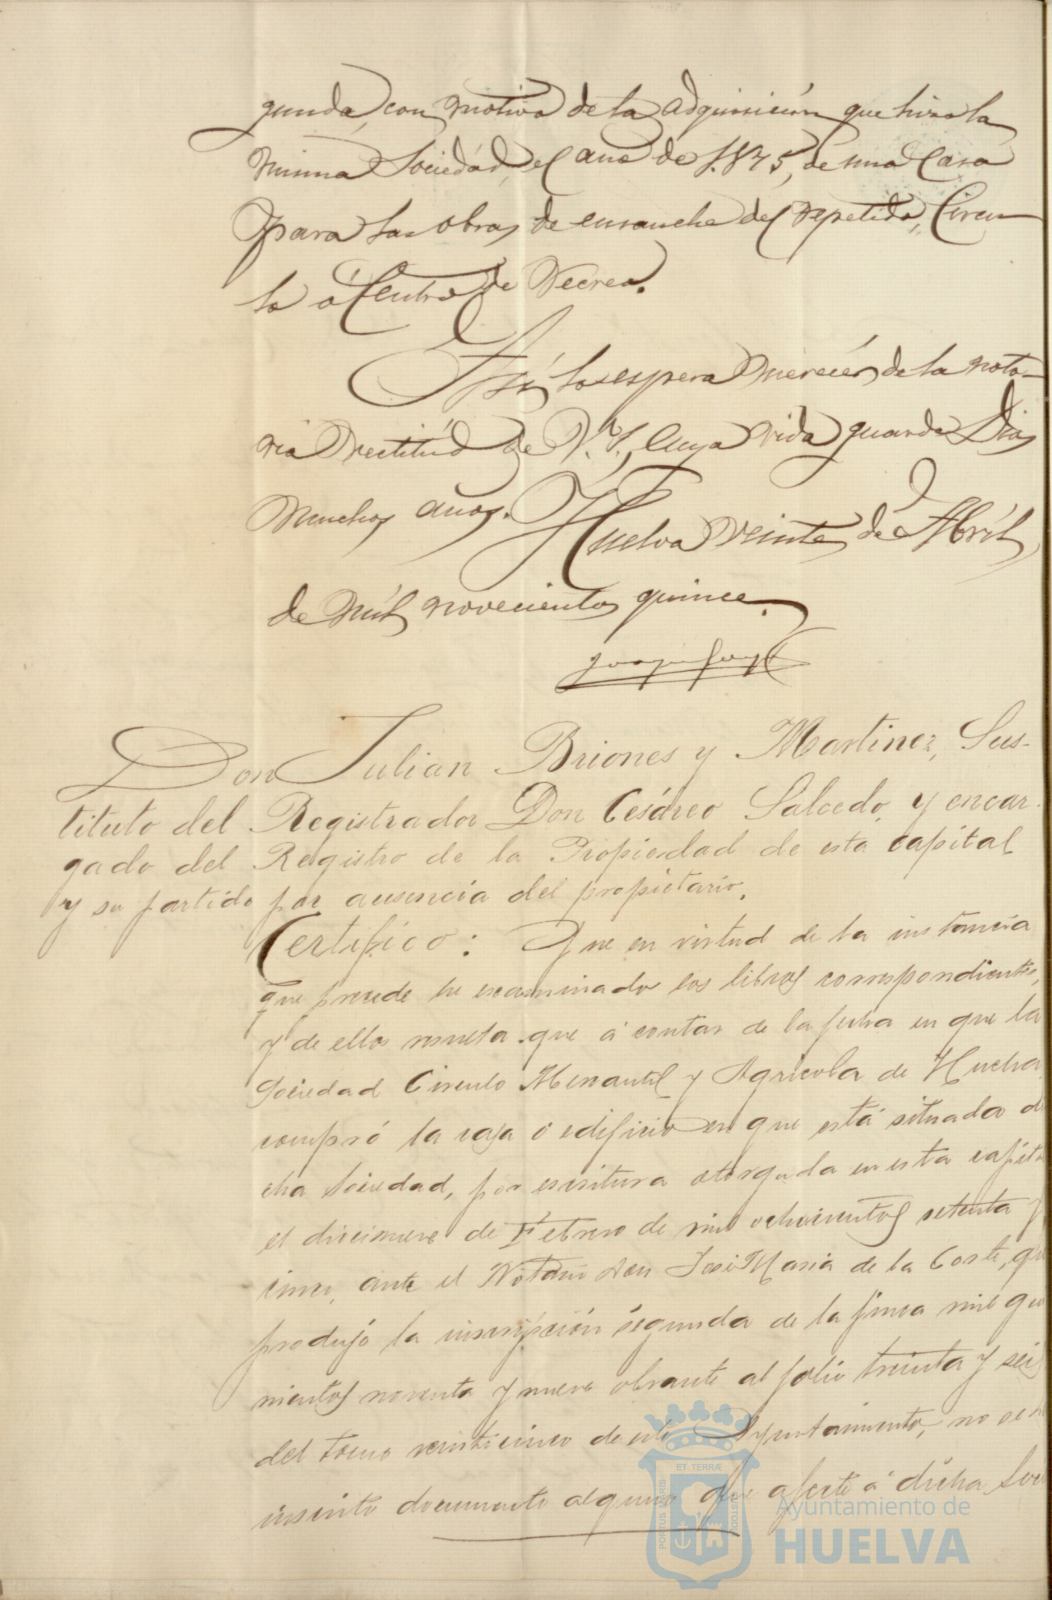 gunda, con motivo de la adquisición que hizo la
misma Sociedad, el año de 1.875, de una Casa
para las obras de ensanche del repetido, Circu-
lo ó Centro de Recreo.
Así lo espera merecer de la noto-
ria rectitud de V. S, cuya vida guarde Dios
muchos años. Huelva veinte de Abril
de mil novecientos quince.
Don Julian Briones y Martinez, Sus-
tituto del Registrador Don Cesáreo Salcedo, y encar-
gado del Registro de la Propiedad de esta capital
y su partido por ausencia del propietario.
Certifico: Que en virtud de la instancia
que precede he examinado los libros correspondientes,
y de ellos resulta que á contar de la fecha en que la
Sociedad Circulo Mercantil y Agricola de Huelva
compró la casa ó edificio en que está situada di
cha Sociedad, por escritura otorgada en esta capital
el diecinueve de Febrero de mil ochocientos setenta y
cinco, ante el Notario Don José Maria de la Corte, que
produjo la inscripción segunda de la finca mil qui
nientos noventa y nueve obrante al folio treinta y seis
del tomo veinticinco de este Ayuntamiento, no se ha
inscrito documento alguno que afecte á dicha Soc
ET TERRÆ
PORTUS MARIS
CUSTODIA
Ayuntamiento de
HUELVA